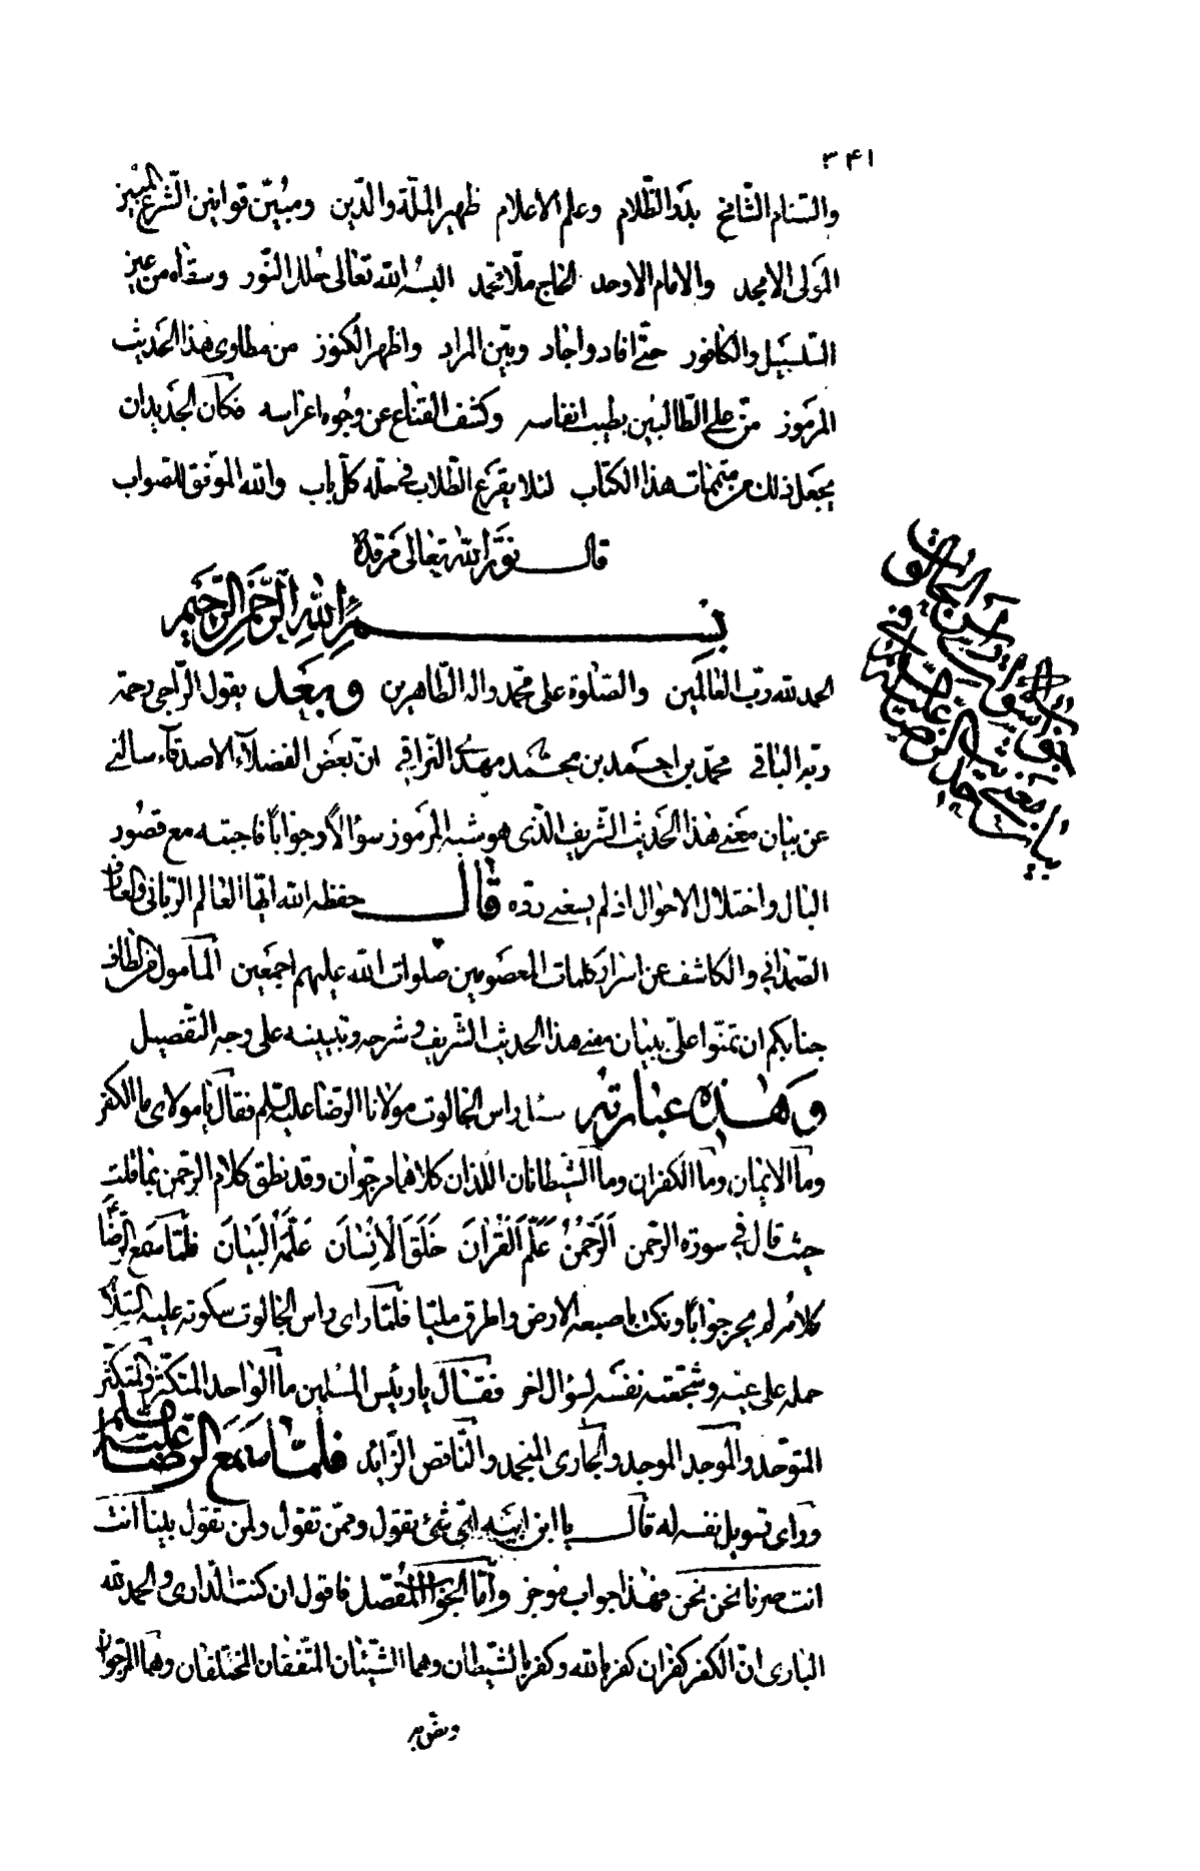 ٣٤١
والسنام الشامخ بدر الظلام وعلم الاعلام ظهير الملة والدين ومبين قوانين الشرع المبين
المولى الامجد والامام الاوحد الحاج ملا محمد البسه الله تعالى حلل النور وسقاه من عين
السلسبيل والكافور حتى افاد واجاد وبين المراد واظهر الكنوز من مطاوى هذا الحديث
المرموز من على الطالبين بطيب انفاسه وكشف القناع عن وجوه اعراسه فكان الجدير ان
يجعل ذلك من متممات هذا الكتاب لئلا يقرع الطلاب فى حله كل باب والله الموفق للصواب
قال نور الله تعالى مرقده
بسم الله الرحمن الرحيم
الحمد لله رب العالمين والصلوة على محمد واله الطاهرين وبعد يقول الراجى رحمة
ربه الباقى محمد بن احمد بن محمد مهدى النراقى ان بعض الفضلاء الاصدقاء سالنى
عن بيان معنى هذا الحديث الشريف الذى هو شبه المرموز سؤالا وجوابا فاجبته مع قصور
البال واختلال الاحوال اذ لم يسعنى رده قال حفظه الله ايها العالم الربانى والعارف
الصمدانى والكاشف عن اسرار كلمات المعصومين صلوات الله عليهم اجمعين المامول من الطاف
جنابكم ان تمنوا على ببيان معنى هذا الحديث الشريف وشرحه وتبيينه على وجه التفصيل
وهذه عبارته سئل راس الجالوت مولانا الرضا عليه السلم فقال يا مولاى ما الكفر
وما الايمان وما الكفران وما الشيطانان اللذان كلاهما مرجوان وقد نطق كلام الرحمن بما قلت
حيث قال فى سورة الرحمن الرحمن علم القران خلق الانسان علمه البيان فلما سمع الرضا
كلامه لم يحر جوابا ونكت باصبعه الارض واطرق مليا فلما راى راس الجالوت سكوته عليه السلام
حمله على عيه وشجعته نفسه لسؤال اخر فقال يا رئيس المسلمين ما الواحد المتكثر والمتكثر
المتوحد والموجد الموجد والجارى المنجمد والناقص الزائد فلما سمع الرضا عليه السلم
وراى تسويل نفسه له قال يا ابن ابيه اى شئ تقول وممن تقول ولمن تقول بينا انت
انت صرنا نحن نحن فهذا جواب موجز واما الجواب المفصل فاقول ان كنت الدارى والحمد لله
البارى ان الكفر كفران كفر بالله وكفر بالشيطان وهما الشيئان المتفقان المختلفان وهما المرجوان
بيان معنى حديث الرضا عليه السلام فى جواب سؤال راس الجالوت